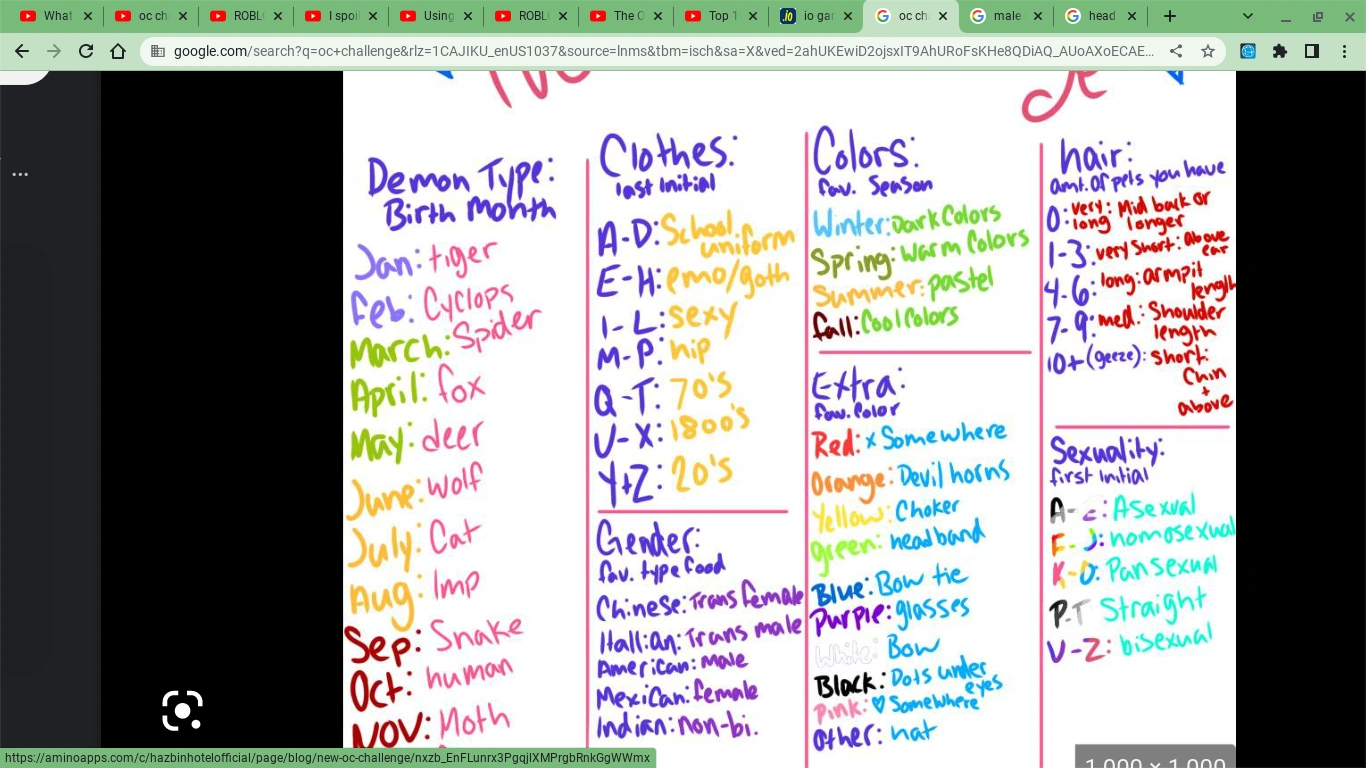 What
oc ch
ROBL
I spoi
Using
ROBL
The C
Top 1
.io
io gar
oc ch
male
head
google.com/search?q=oc+challenge&rlz=1CAJIKU_enUS1037&source=lnms&tbm=isch&sa=X&ved=2ahUKEwiD2ojsxIT9AhURoFsKHe8QDiAQ_AUoAXoECAE...
Demon Type:
Birth Month
Jan: tiger
Feb: Cyclops
March: Spider
April: fox
May: deer
June: wolf
July: Cat
Aug: Imp
Sep: Snake
Oct: human
Nov: Moth
Clothes:
last initial
A-D: School
uniform
E-H: emo/goth
I-L: sexy
M-P: hip
Q-T: 70's
U-X: 1800's
Y+Z: 20's
Gender:
fav. type food
Chinese: Trans female
Itallian: Trans male
American: male
Mexican: female
Indian: non-bi.
Colors:
fav. Season
Winter: Dark Colors
Spring: Warm Colors
Summer: pastel
fall: Cool Colors
Extra:
fav. Color
Red: x Somewhere
Orange: Devil horns
Yellow: Choker
green: headband
Blue: Bow tie
Purple: glasses
White: Bow
Black: Dots under
eyes
Pink: ♡ Somewhere
Other: hat
hair:
amt. of pets you have
0: very long: Mid back or
longer
1-3: very Short: above
ear
4-6: long: armpit
length
7-9: med.: Shoulder
length
10+ (geeze): short:
Chin
+
above
Sexuality:
first initial
A-E: Asexual
F-J: homosexual
K-O: Pansexual
P-T Straight
U-Z: bisexual
1,000 × 1,000
https://aminoapps.com/c/hazbinhotelofficial/page/blog/new-oc-challenge/nxzb_EnFLunrx3PgqjlXMPrgbRnkGgWWmx